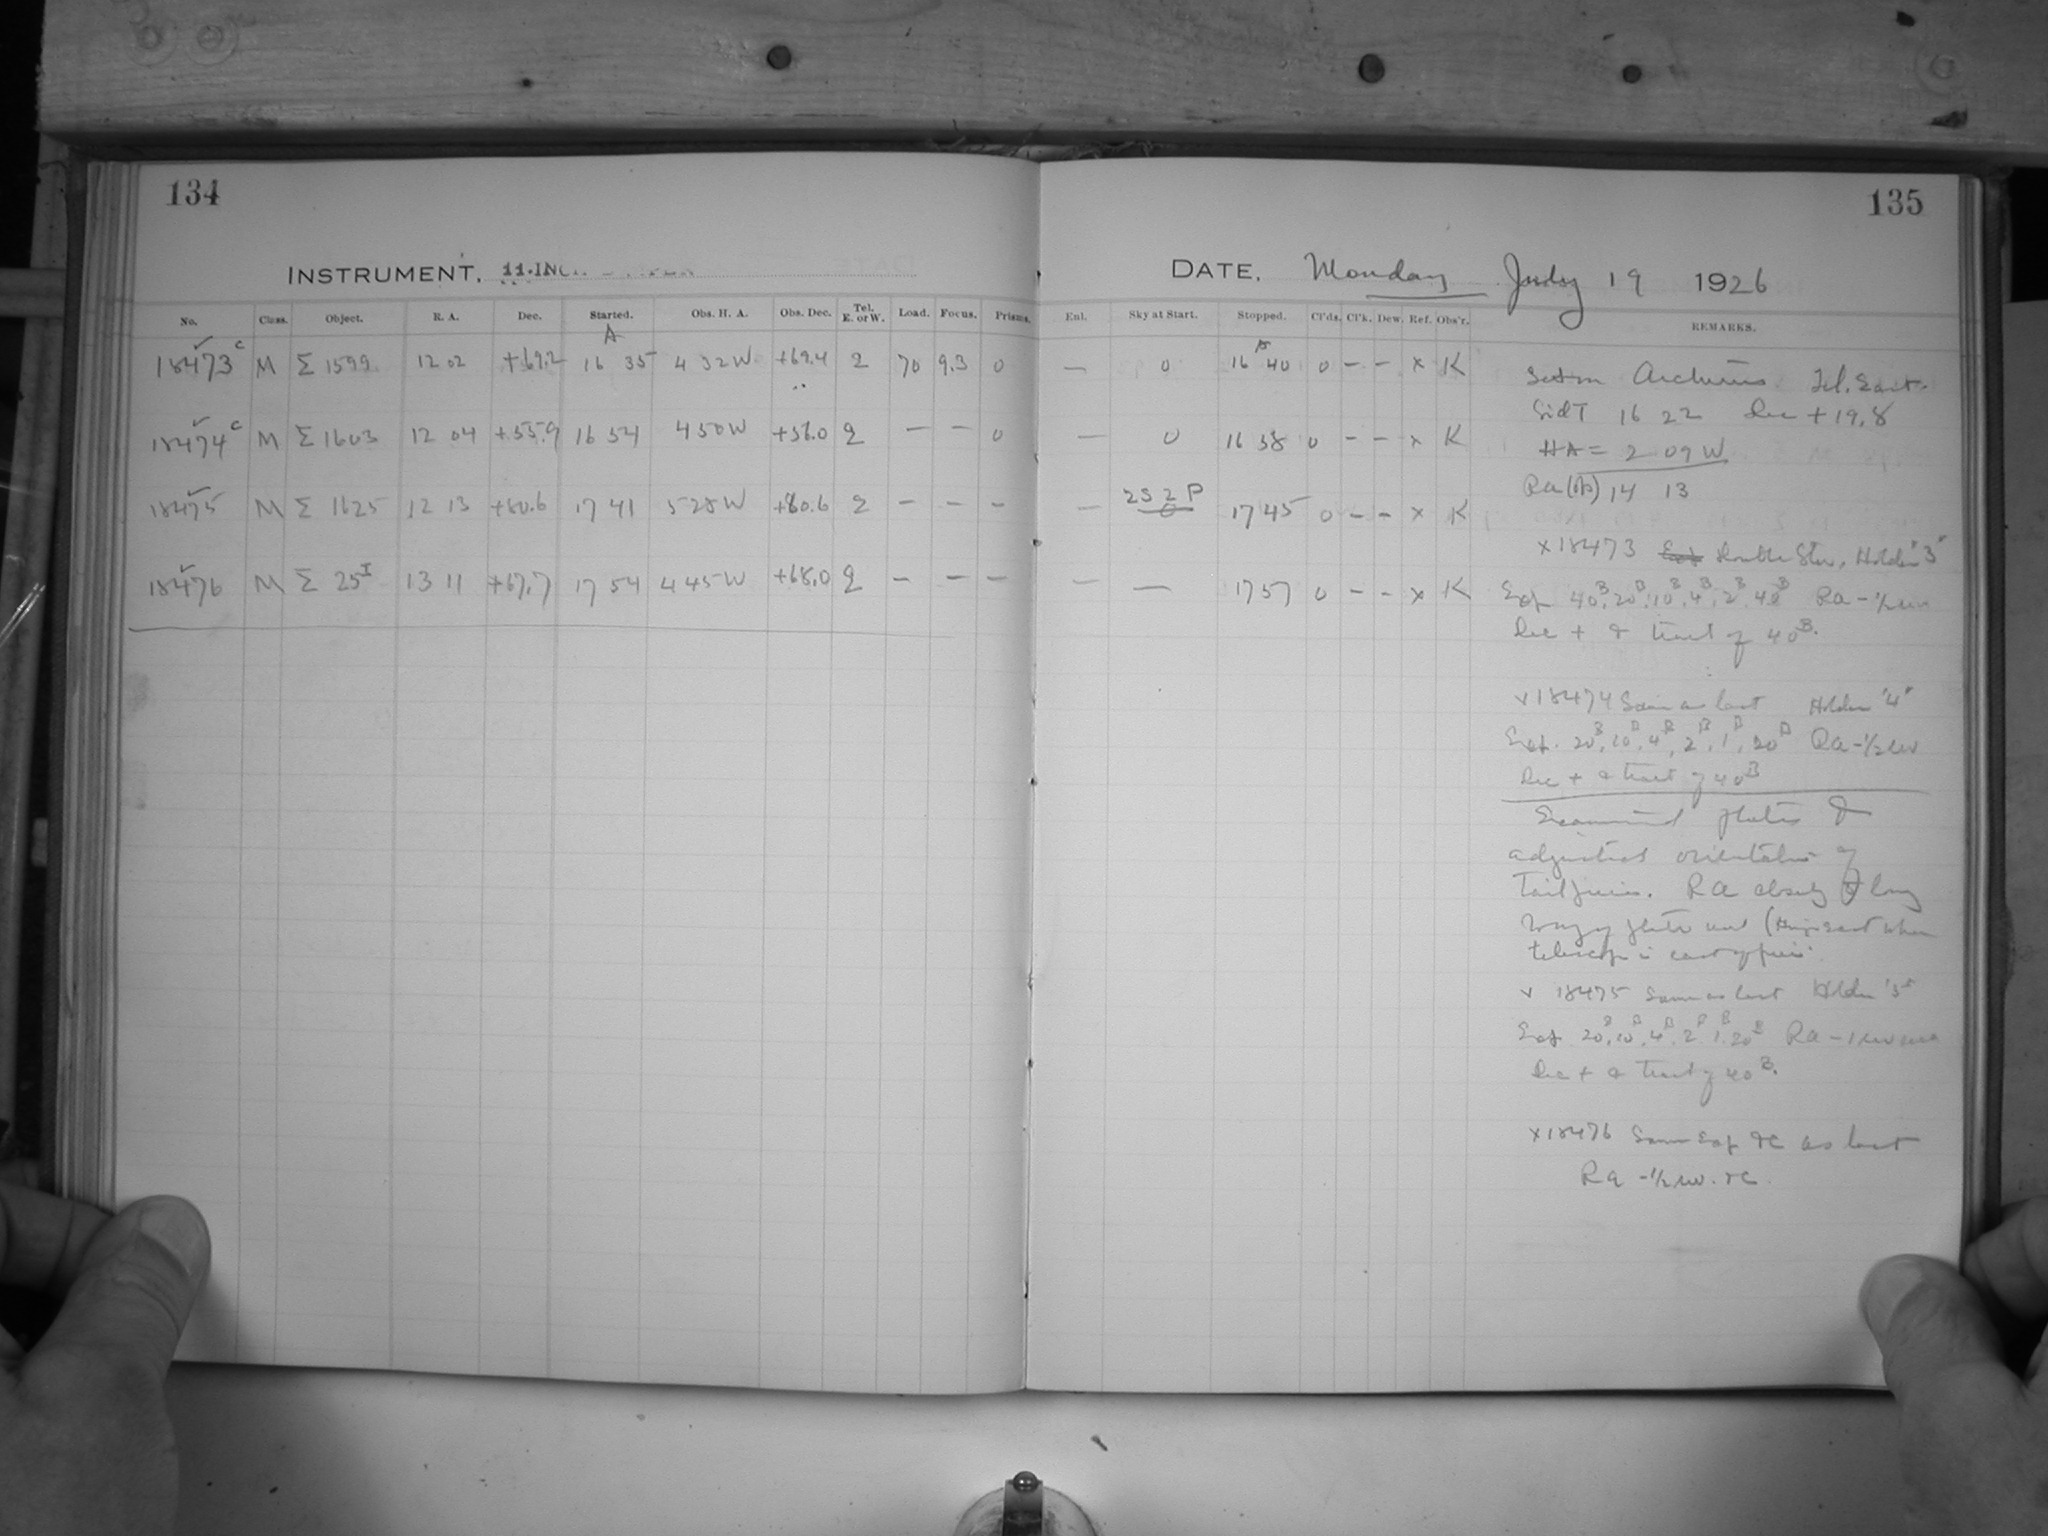 134
135
INSTRUMENT. 11-INCH
DATE. Monday July 19 1926
No. Class. Object. R. A. Dec. Started. Obs. H. A. Obs. Dec. Tel. E. or W. Load. Focus. Prisms.
Enl. Sky at Start. Stopped. Cl'ds. Cl'k. Dew. Ref. Obs'r. REMARKS.
A
18473 c M Σ 1599 12 02 +69.2 16 35 4 32 W +69.4 E 70 9.3 0 — 0 16 40 0 – – x K
18474 c M Σ 1603 12 04 +55.9 16 54 4 50 W +56.0 E – – 0 — 0 16 58 0 – – x K
18475 M Σ 1625 12 13 +80.6 17 41 5 28 W +80.6 E – – – — 2S 2 P 17 45 0 – – x K
18476 M Σ 25 I 13 11 +67.7 17 54 4 45 W +68.0 E – – – — — 17 57 0 – – x K
Set on Arcturus. Tel. East.
Sid T 16 22 Dec + 19.8
HA = 2 09 W
Ra (ob) 14 13
x 18473 Double Star, Holder "3"
Exp 40B, 20B, 10B, 4B, 2B, 40B Ra – 1/2 rev
Dec + & trail of 40B.
x 18474 Same as last Holder "4"
Exp. 20B, 10B, 4B, 2B, 1B, 20B Ra – 1/2 rev
Dec + & trail of 40B
Examined plates &
adjusted orientation of
Tailpiece. Ra closely long
way of plate now (
telescope is east of pier.
x 18475 Same as last Holder "5"
Exp 20B, 10B, 4B, 2B, 1B, 20B Ra – 1 rev
Dec + & trail of 40B.
x 18476 Same Exp &c as last
Ra – 1/2 rev. &c.